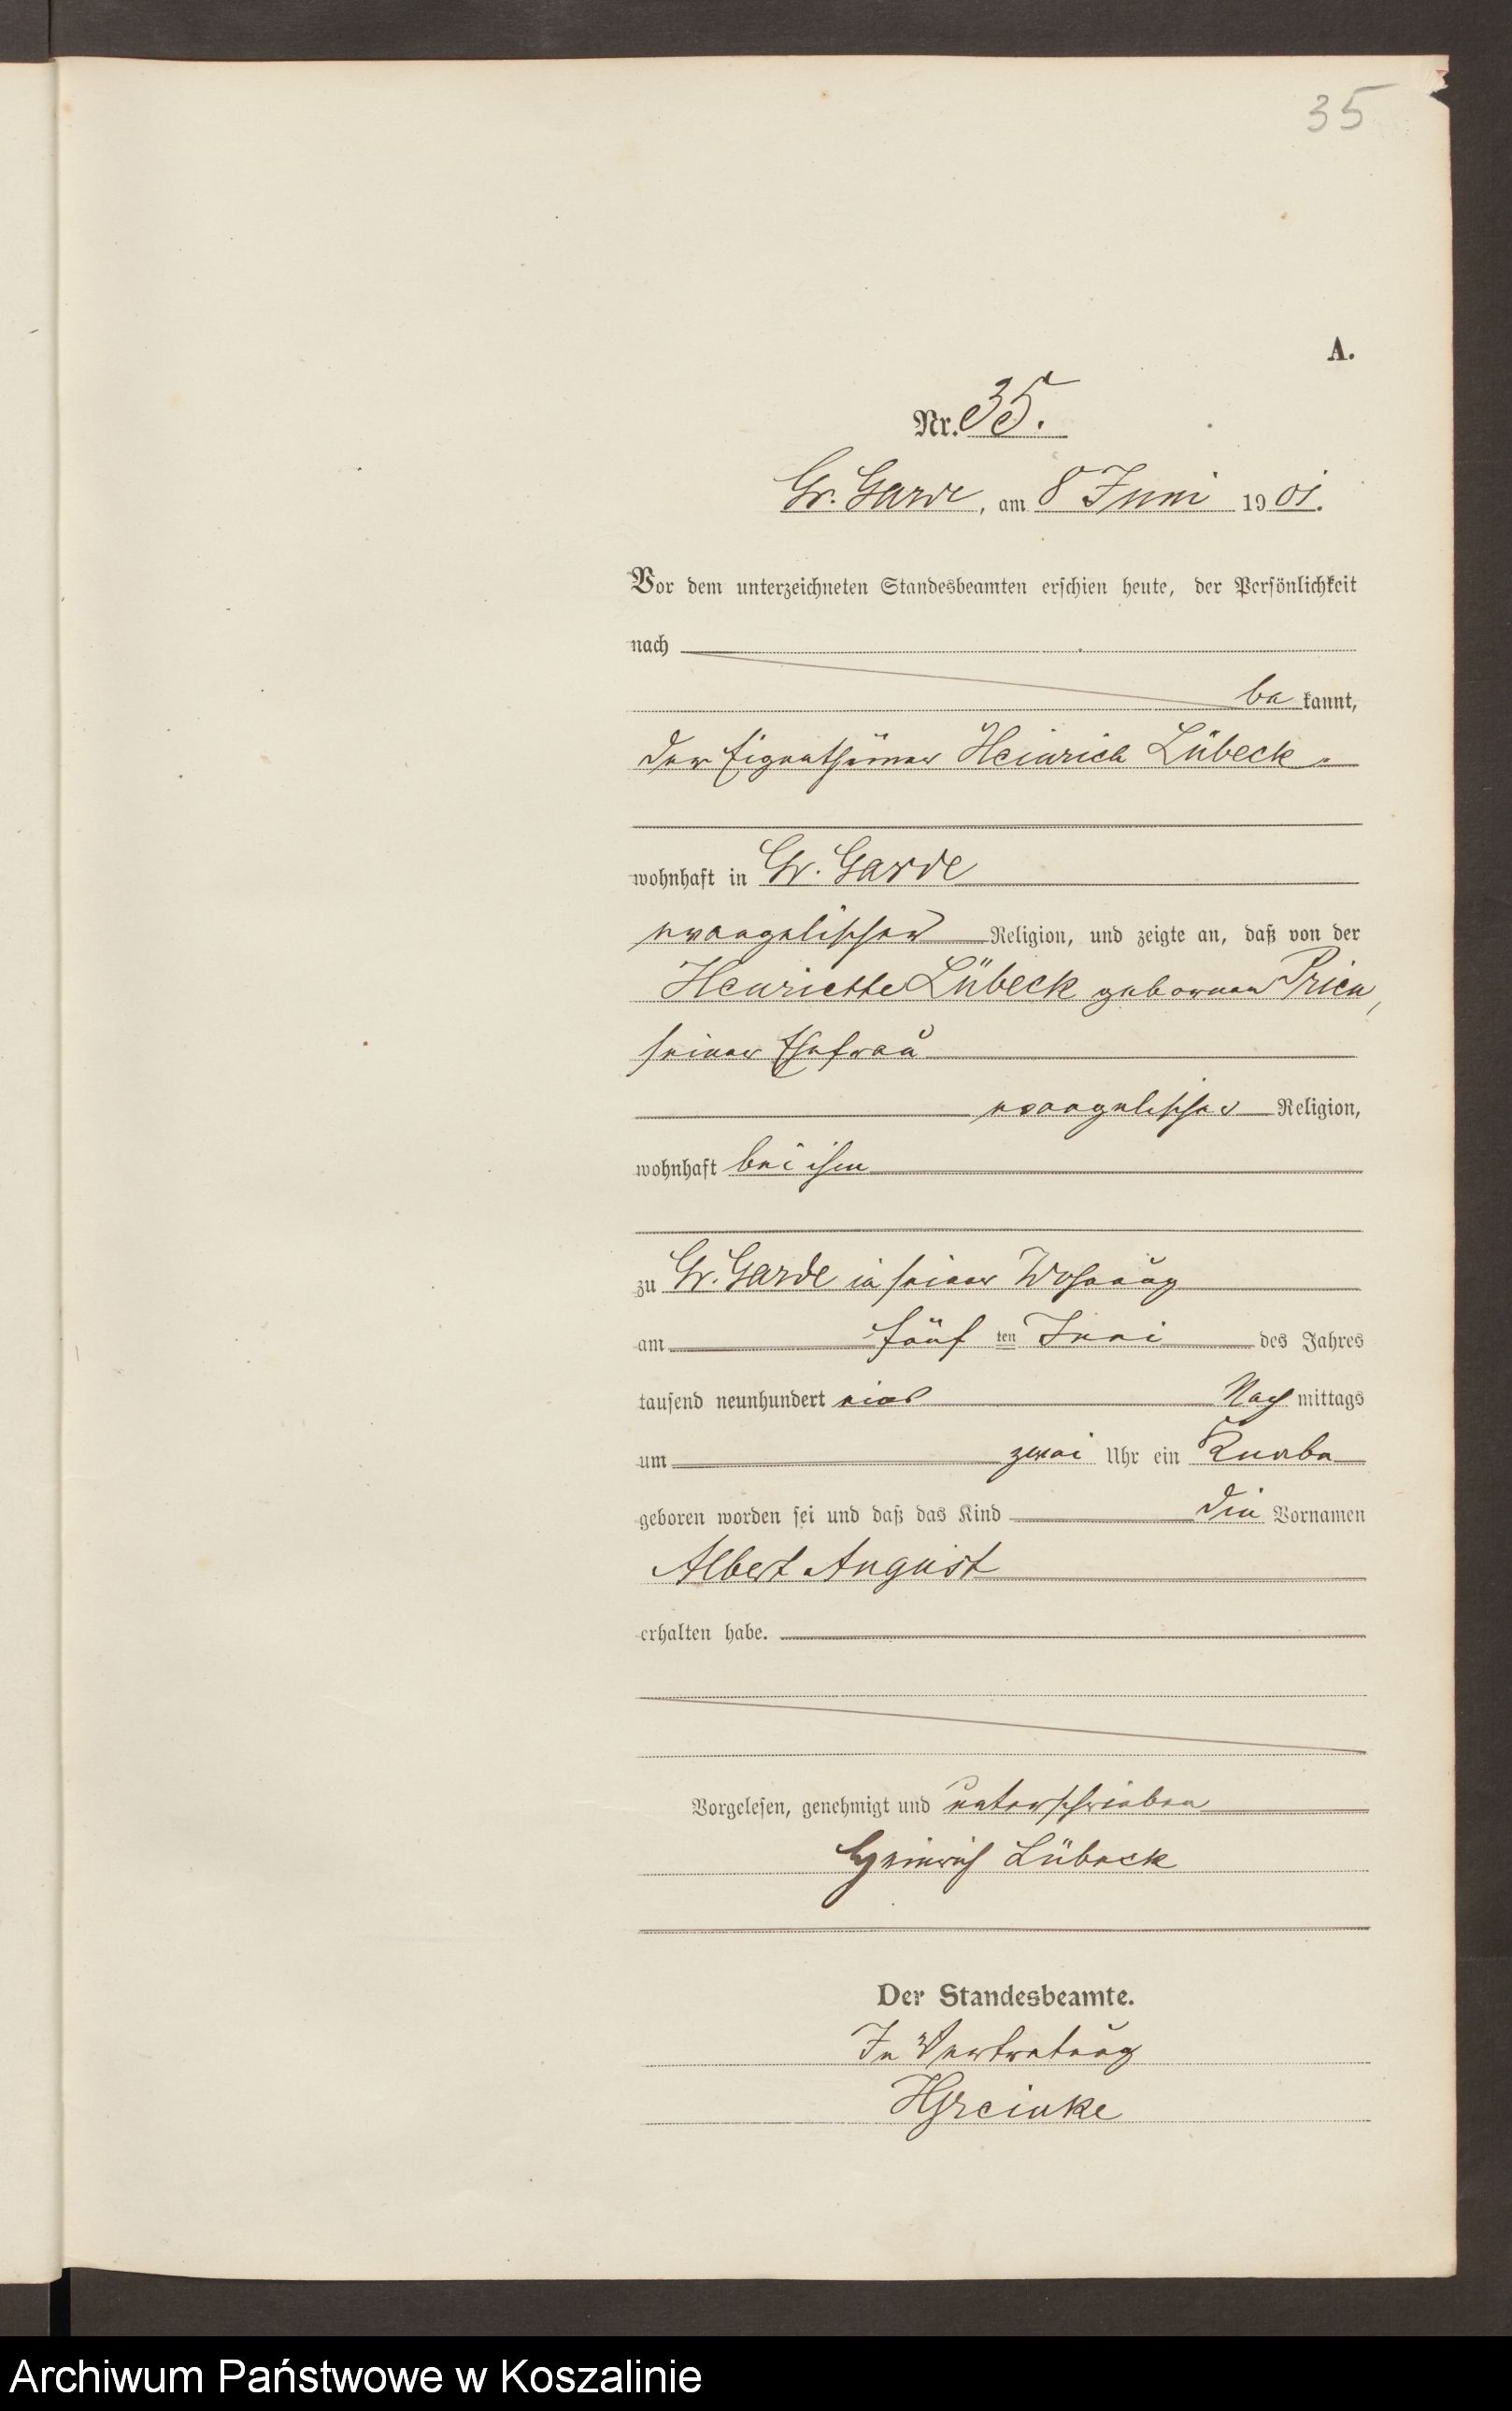 35
A.
Nr. 35.
Gr. Garde, am 8 Juni 1901.
Vor dem unterzeichneten Standesbeamten erschien heute, der Persönlichkeit
nach
be kannt,
der Eigenthümer Heinrich Lübeck
wohnhaft in Gr. Garde
evangelischer Religion, und zeigte an, daß von der
Henriette Lübeck geborenen Prien,
seiner Ehefrau
evangelischer Religion,
wohnhaft bei ihm
zu Gr. Garde in seiner Wohnung
am fünf ten Juni des Jahres
tausend neunhundert eins Nach mittags
um zwei Uhr ein Knabe
geboren worden sei und daß das Kind die Vornamen
Albert August
erhalten habe.
Vorgelesen, genehmigt und unterschrieben
Heinrich Lübeck
Der Standesbeamte.
In Vertretung
Archiwum Państwowe w Koszalinie